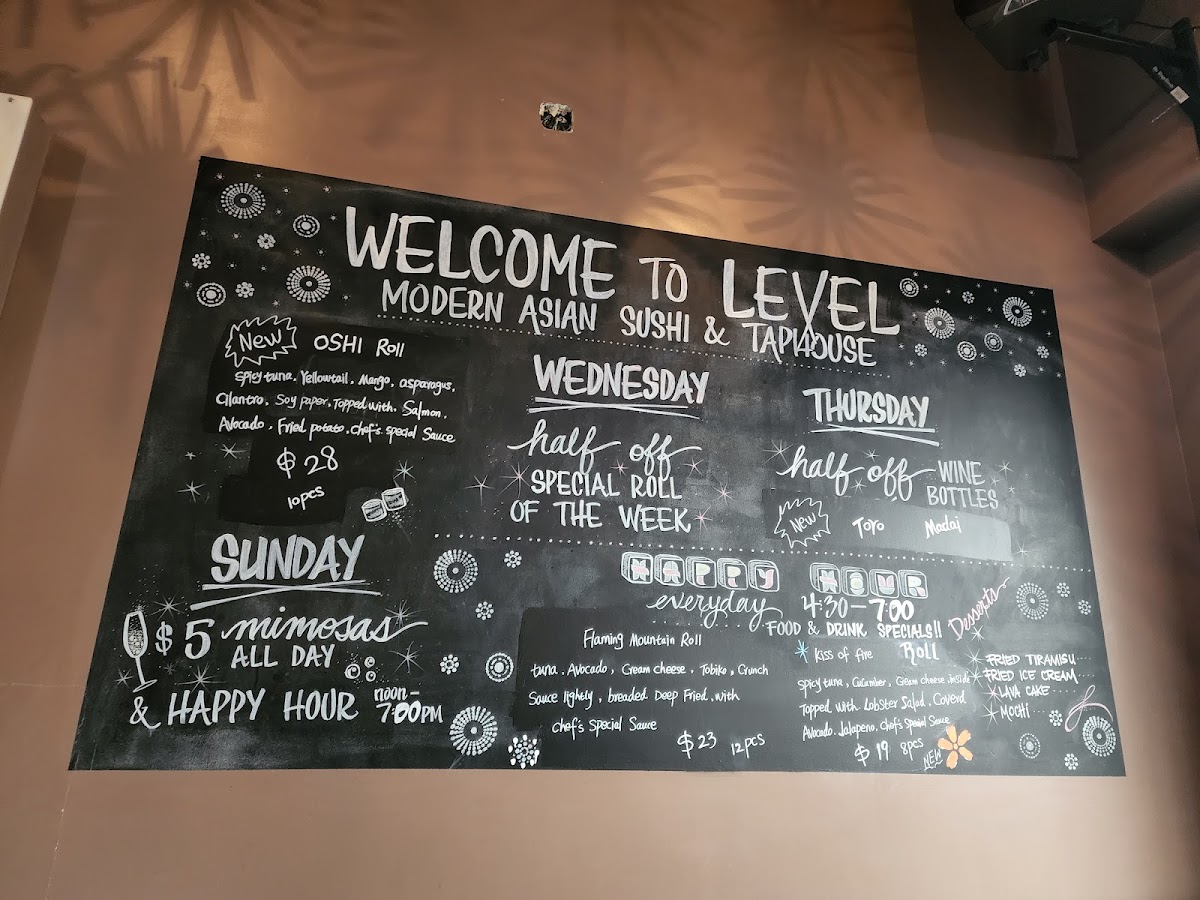 WELCOME TO LEVEL
MODERN ASIAN SUSHI & TAPHOUSE
New OSHI Roll
Spicy tuna, Yellowtail, Mango, asparagus,
Cilantro, Soy paper, Topped with Salmon,
Avocado, Fried potato, chef's special Sauce
$28
10pcs
WEDNESDAY
half off
SPECIAL ROLL
OF THE WEEK
THURSDAY
half off WINE
BOTTLES
New Toro Madai
SUNDAY
$5 mimosas
ALL DAY
& HAPPY HOUR noon-
7:00PM
HAPPY HOUR
everyday 4:30-7:00
FOOD & DRINK SPECIALS!!
Flaming Mountain Roll
tuna, Avocado, Cream cheese, Tobiko, Crunch
Sauce lightly, breaded Deep Fried, with
chef's Special Sauce
$23 12pcs
Kiss of fire Roll
Spicy tuna, Cucumber, Cream cheese, inside
Topped with Lobster Salad, Coverd
Avocado, Jalapeno, Chef's Special Sauce
$19 8pcs
NEW
Desserts
FRIED TIRAMISU
FRIED ICE CREAM
LAVA CAKE
MOCHI